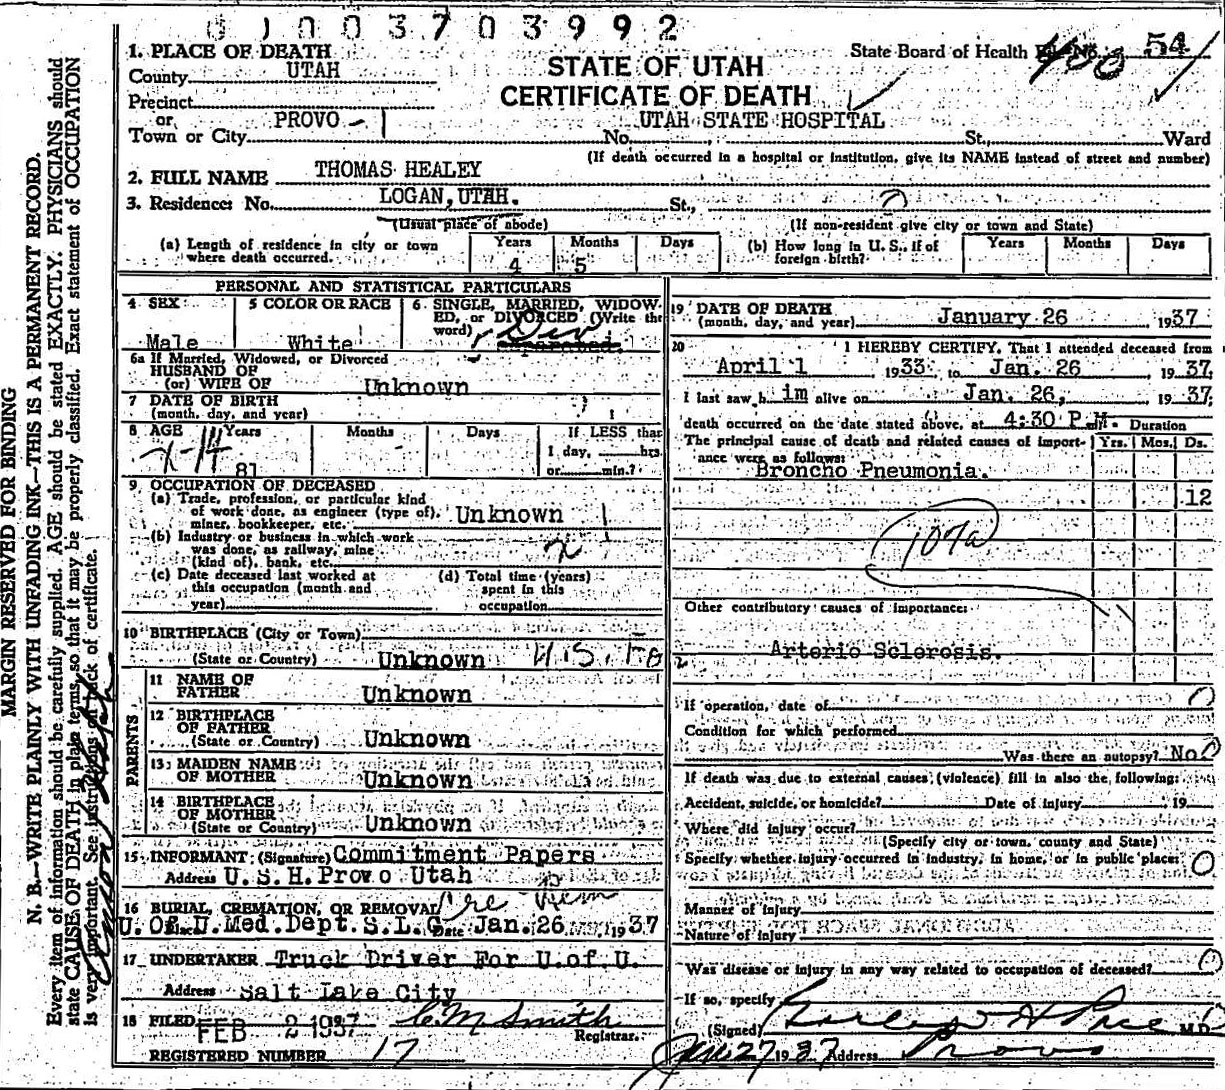 0 1 0 0 3 7 0 3 9 9 2
MARGIN RESERVED FOR BINDING
N. B.—WRITE PLAINLY WITH UNFADING INK—THIS IS A PERMANENT RECORD.
Every item of information should be carefully supplied. AGE should be stated EXACTLY. PHYSICIANS should
state CAUSE OF DEATH in plain terms, so that it may be properly classified. Exact statement of OCCUPATION
is very important. See instructions on back of certificate.
1. PLACE OF DEATH
County UTAH
Precinct
or
Town or City PROVO - 1
STATE OF UTAH
CERTIFICATE OF DEATH
State Board of Health File No. 54
400
UTAH STATE HOSPITAL
No. St., Ward
(If death occurred in a hospital or institution, give its NAME instead of street and number)
2. FULL NAME THOMAS HEALEY
3. Residence: No. LOGAN, UTAH. St.,
(Usual place of abode) (If non-resident give city or town and State)
(a) Length of residence in city or town where death occurred. Years 4 Months 5 Days
(b) How long in U. S., if of foreign birth? Years Months Days
PERSONAL AND STATISTICAL PARTICULARS
4 SEX Male
5 COLOR OR RACE White
6 SINGLE, MARRIED, WIDOWED, or DIVORCED (Write the word) Div
6a If Married, Widowed, or Divorced
HUSBAND OF
(or) WIFE OF Unknown
7 DATE OF BIRTH
(month, day, and year)
8 AGE Years 81 Months Days If LESS than 1 day, hrs. or min.?
9 OCCUPATION OF DECEASED
(a) Trade, profession, or particular kind of work done, as engineer (type of), miner, bookkeeper, etc. Unknown
(b) Industry or business in which work was done, as railway, mine (kind of), bank, etc.
(c) Date deceased last worked at this occupation (month and year)
(d) Total time (years) spent in this occupation
10 BIRTHPLACE (City or Town)
(State or Country) Unknown U.S.
PARENTS
11 NAME OF FATHER Unknown
12 BIRTHPLACE OF FATHER (State or Country) Unknown
13 MAIDEN NAME OF MOTHER Unknown
14 BIRTHPLACE OF MOTHER (State or Country) Unknown
15 INFORMANT (Signature) Commitment Papers
Address U.S.H. Provo Utah
16 BURIAL, CREMATION, OR REMOVAL Rem
Place U. Of U. Med. Dept. S.L.C. Date Jan. 26 1937
17 UNDERTAKER Truck Driver For U. of U.
Address Salt Lake City
18 FILED FEB 2 1937 C M Smith
Registrar.
REGISTERED NUMBER 17
19 DATE OF DEATH
(month, day, and year) January 26 1937
20 I HEREBY CERTIFY, That I attended deceased from
April 1 1933 to Jan. 26 1937
I last saw him alive on Jan. 26, 1937
death occurred on the date stated above, at 4:30 P.M. Duration
The principal cause of death and related causes of importance were as follows: Yrs. Mos. Ds.
Broncho Pneumonia.
12
107a
Other contributory causes of importance:
Arterio Sclerosis.
If operation, date of 0
Condition for which performed
Was there an autopsy? No
If death was due to external causes (violence) fill in also the following:
Accident, suicide, or homicide? Date of injury , 19
Where did injury occur?
(Specify city or town, county and State)
Specify whether injury occurred in industry, in home, or in public place: 0
Manner of injury
Nature of injury
Was disease or injury in any way related to occupation of deceased? 0
If so, specify
(Signed) M.D.
Jan 27 1937 Address Provo